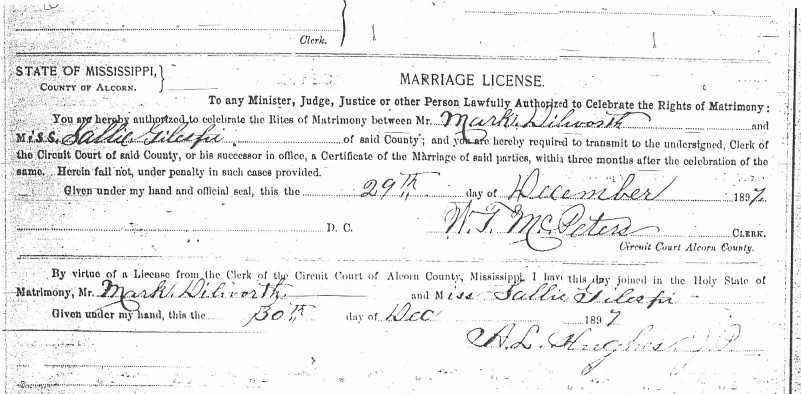 Clerk.
STATE OF MISSISSIPPI,
COUNTY OF ALCORN.
MARRIAGE LICENSE.
To any Minister, Judge, Justice or other Person Lawfully Authorized to Celebrate the Rights of Matrimony:
You are hereby authorized to celebrate the Rites of Matrimony between Mr. Mark Dilworth and
Miss. Sallie Gilespi of said County; and you are hereby required to transmit to the understgned, Clerk of
the Circuit Court of said County, or his successor in office, a Certificate of the Marriage of said parties, within three months after the celebration of the
same. Herein fail not, under penalty in such cases provided.
Given under my hand and official seal, this the 29th day of December 1897.
D. C. W. T. McPeters CLERK.
Circuit Court Alcorn County.
By virtue of a License from the Clerk of the Circuit Court of Alcorn County, Mississippi, I have this day joined in the Holy State of
Matrimony, Mr. Mark Dilworth and Miss Sallie Gilespi
Given under my hand, this the 30th day of Dec 1897
A. L. Hughes J P